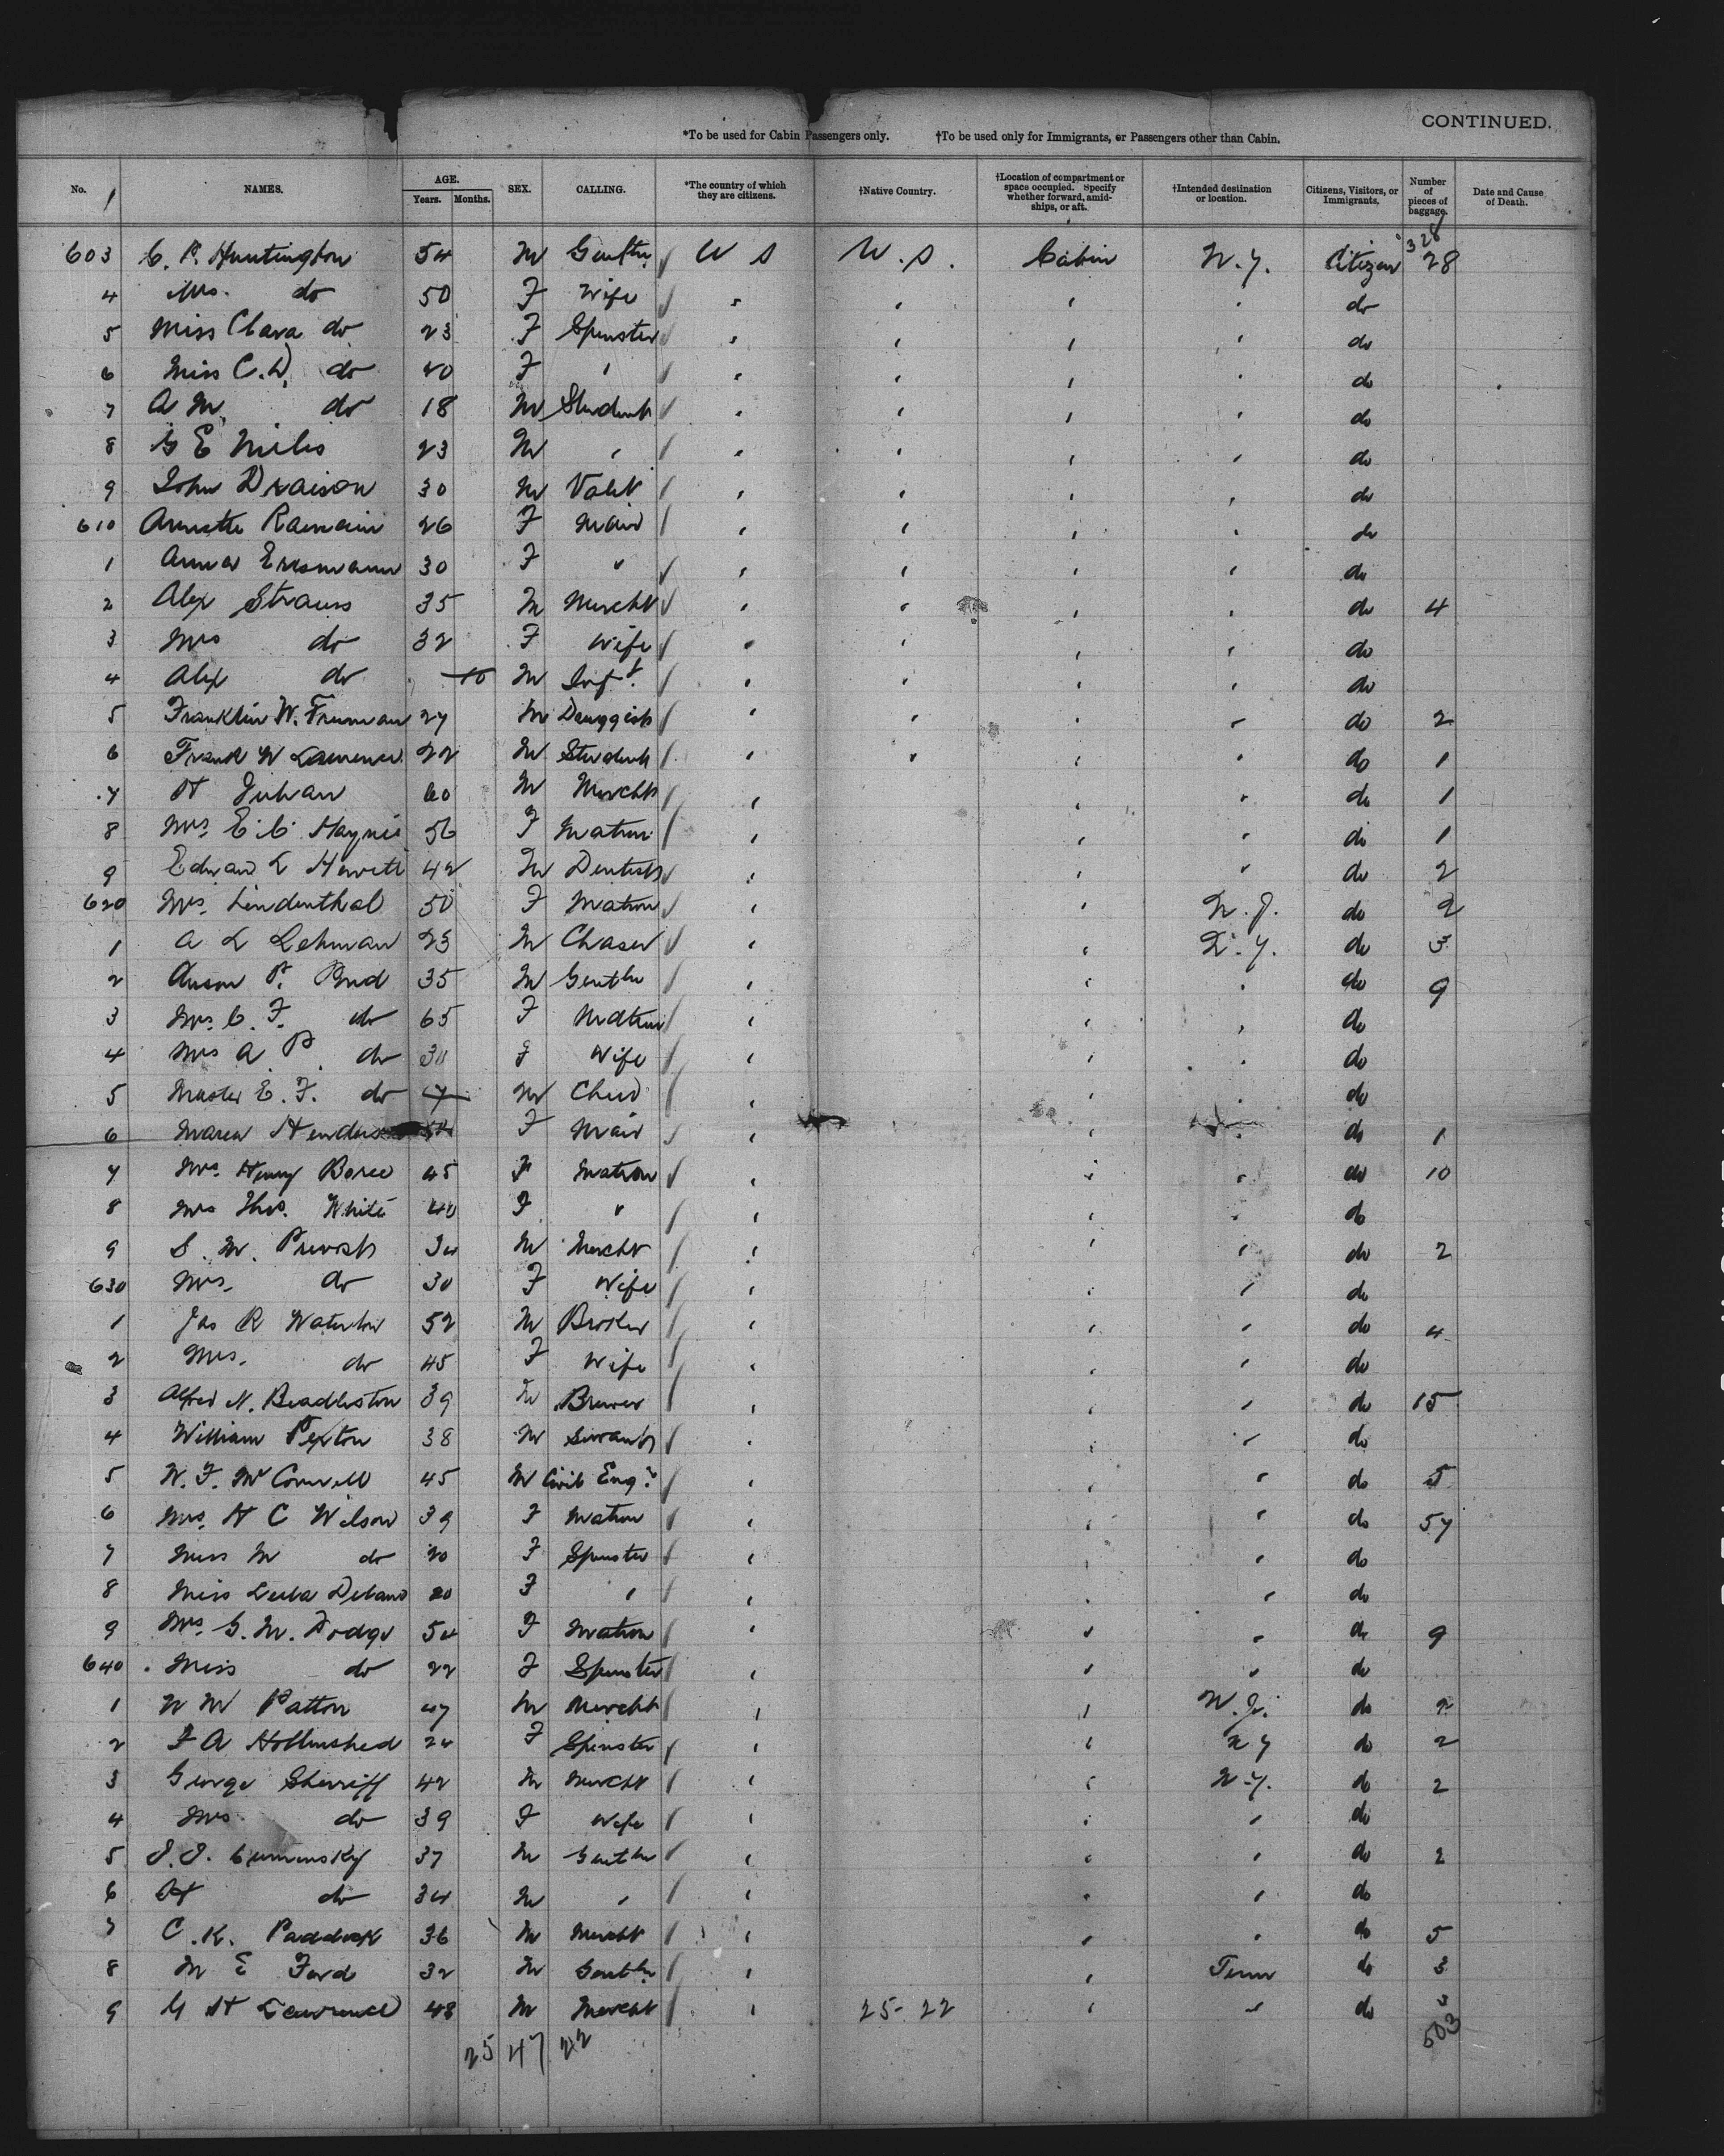 CONTINUED.
*To be used for Cabin Passengers only. †To be used only for Immigrants, or Passengers other than Cabin.
No. NAMES. AGE. Years. Months. SEX. CALLING. *The country of which they are citizens. †Native Country. †Location of compartment or space occupied. Specify whether forward, amidships, or aft. †Intended destination or location. Citizens, Visitors, or Immigrants. Number of pieces of baggage. Date and Cause of Death.
1
328
603 C. P. Huntington 54 M U S U.S. Cabin N.Y. Citizen 28
4 Mrs. do 50 F Wife do
5 Miss Clara do 23 F Spinster do
6 Miss C.D. do 40 F " do
7 A M. do 18 M Student do
8 G E Miles 23 M " do
9 John Draison 30 M Valet do
610 Annette 26 F Maid do
1 Anna 30 F " do
2 Alex Strauss 35 M Mercht do 4
3 Mrs do 32 F Wife do
4 Alex do 10 M Inft. do
5 Franklin W. Freeman 27 M Druggist do 2
6 Frank W Lawrence 22 M Student do 1
7 H Julian 60 M Mercht do 1
8 Mrs. E. C. Haynie 56 F Matron do 1
9 Edward L Hewitt 42 M Dentist do 2
620 Mrs. Lindenthal 50 F Matron N.J. do 2
1 A L Lehman 23 M N.Y. do 3
2 Anson P. 35 M Gentln do 9
3 Mrs. C. F. do 65 F Matron do
4 Mrs A. P. do 30 F Wife do
5 Master E. F. do 7 M Child do
6 Maria F Maid do 1
7 Mrs. Henry 45 F Matron do 10
8 Mrs Thos. White 40 F " do
9 S. M. 34 M Mercht do 2
630 Mrs. do 30 F Wife do
1 Jas R 52 M Broker do 4
2 Mrs. do 45 F Wife do
3 Alfred N. Beadleston 39 M Brewer do 15
4 William Pexton 38 M Servant do
5 W. F. McConnell 45 M Civil Engr. do 5
6 Mrs. H C Wilson 39 F Matron do 57
7 Miss M do 20 F Spinster do
8 Miss 20 F " do
9 Mrs. G. M. Dodge 54 F Matron do 9
640 Miss do 22 F Spinster do
1 W W Patton 47 M Mercht N.J. do 2
2 F A Hollinshed 24 F Spinster N Y do 2
3 George Sherriff 42 M Mercht N.Y. do 2
4 Mrs do 39 F Wife do
5 37 M Gentln do 2
6 H do 34 M " do
7 C. K. Paddock 36 M Mercht do 5
8 M E Ford 32 M Gentln Tenn do 3
9 G H Lawrence 48 M Mercht 25-22 " do 3
25 47 22 503